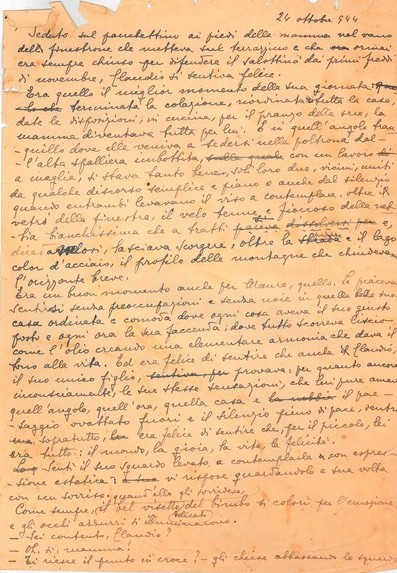 24 ottobre 944
Seduto sul panchettino ai piedi della mamma nel vano
della finestrone che metteva sul terrazzino e che ormai
era sempre chiuso per difendere il salottino dai primi freddi
di novembre, Claudio si sentiva felice.
Era quello il miglior momento della sua giornata
terminata la colazione, riordinata tutta la casa,
date le disposizioni, in cucina, per il pranzo della sera, la
mamma diventava tutta per lui. E in quell'angolo tran-
quillo dove elle veniva a sedersi nella poltrona dal-
l'alta spalliera imbottita, sulla quale con un lavoro
a maglia, si stava tanto bene, soli loro due, vicini, uniti
da qualche discorso semplice e piano o anche dal silenzio
quando entrambi levavano il viso a contemplare, oltre i
vetri della finestra, il velo tenue e fioccoso della neb-
bia bianchissima che a tratti pareva dissolversi e,
diradandosi, lasciava scorgere, oltre la strada e il lago
color d'acciaio, il profilo delle montagne che chiudevano
l'orizzonte breve.
Era un buon momento anche per Maura, quello. Le piaceva
sentirsi senza preoccupazioni e senza noie in quella bella sua
casa ordinata e comoda dove ogni cosa aveva il suo giusto
posto e ogni ora la sua faccenda; dove tutto scorreva liscio
come l'olio creando una elementare armonia che dava il
tono alla vita. Ed era felice di sentire che anche il Claudio,
il suo unico figlio, sentiva, per provava, per quanto ancora
inconsciamente, le sue stesse sensazioni, che lui pure amava
quell'angolo, quell'ora, quella casa e la nebbia il pae-
saggio ovattato fuori e il silenzio pieno di pace, dentro
ma soprattutto, era felice di sentire che, per il piccolo, lei
era tutto: il mondo, la gioia, la vita, la felicità.
Sentì il suo sguardo levato a contemplarla con espres-
sione estatica e vi rispose guardandolo a sua volta
con un sorriso. quand'ella gli sorrideva,
Come sempre, il bel visetto del bimbo si colorì per l'emozione
e gli occhi azzurri si illuminarono.
delicati
— Sei contento, Claudio?
— Oh, sì, mamma!
— Ti riesce il punto in croce? — gli chiese abbassando lo sguardo